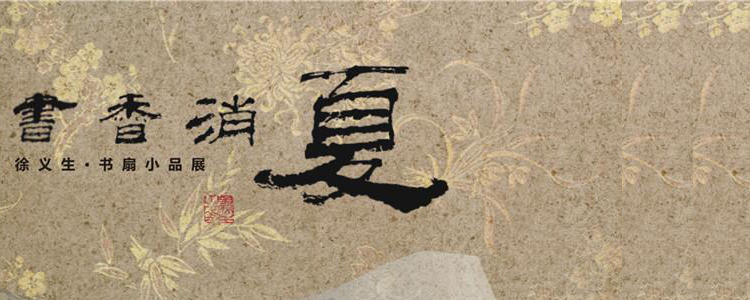 書香消夏
徐义生·书扇小品展